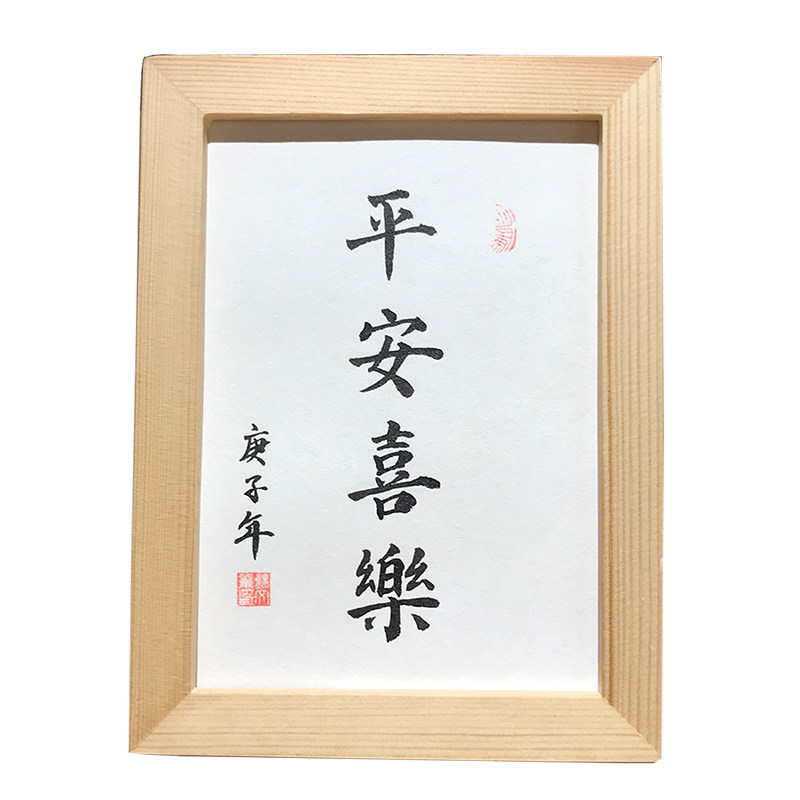 平安喜樂
庚子年